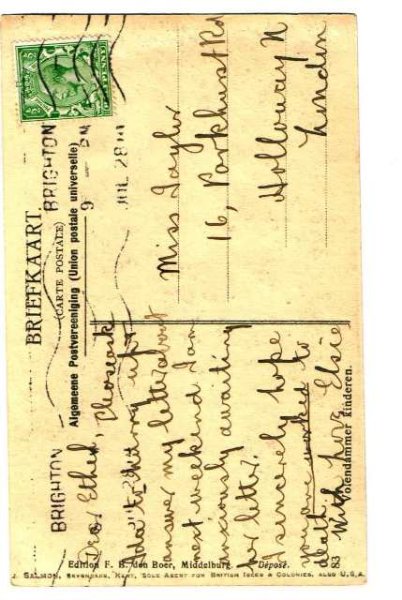 BRIEFKAART.
(CARTE POSTALE)
Algemeene Postvereeniging (Union postale universelle)
BRIGHTON
BRIGHTON
9 - PM
JUL 28
Dear Ethel, Please ask
Ada to hurry up &
answer my letter about
next weekend. I am
anxiously awaiting
her letter.
I sincerely hope
you are worked to
death.
With love Elsie
Miss Taylor
16, Parkhurst Rd
Holloway N
London
Volendammer kinderen.
Edition F. B. den Boer, Middelburg. Déposé. 83
J. SALMON, SEVENOAKS, KENT, SOLE AGENT FOR BRITISH ISLES & COLONIES, ALSO U.S.A.